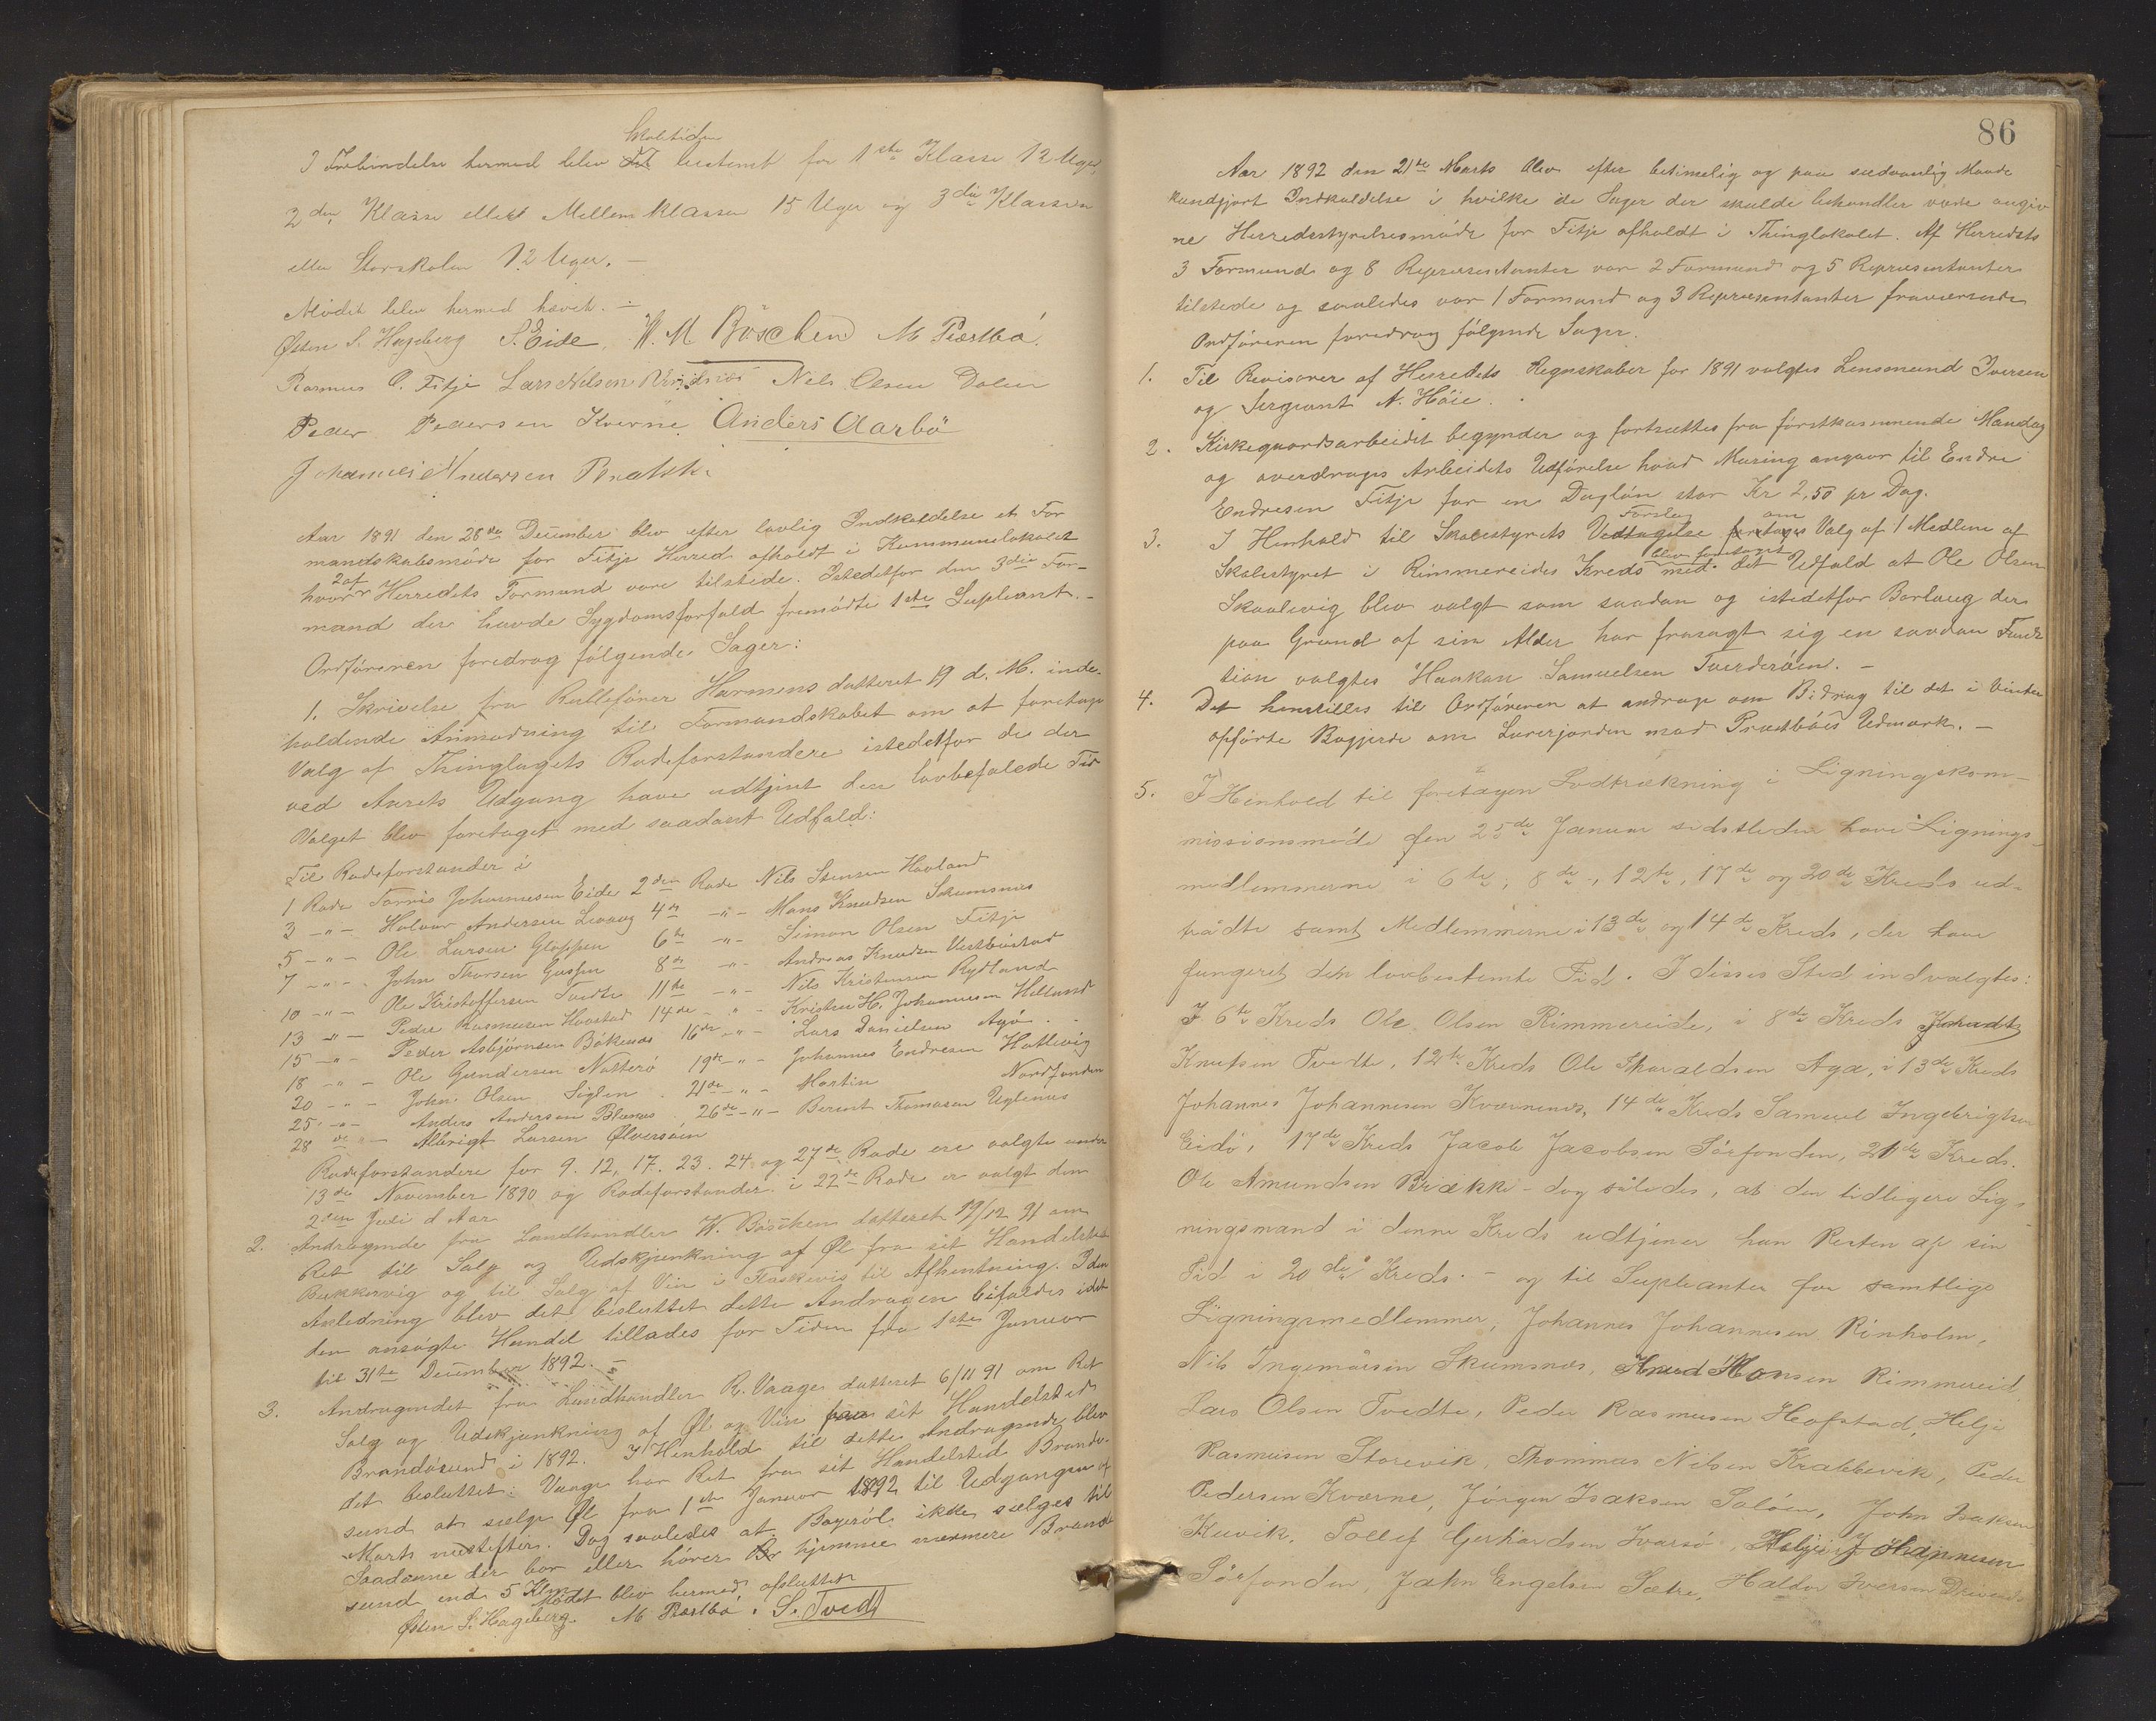 Skoletiden
I Forbindelse hermed blev bestemt for 1ste Klasse 12 Uger,
2den Klasse eller Mellemklassen 15 Uger og 3die Klassen
eller Storskolen 12 Uger. –
Mødet blev hermed hævet. –
Østen S. Hageberg S. Eide, W. M Böschen M Præstbö.
Rasmus O. Fitje Lars Nilsen Nils Olsen Dalen
Peder Pedersen Kverne Anders Aarbö
Johannes Andersen
Aar 1891 den 28de December blev efter lovlig Indkaldelse et For
mandskabsmöde for Fitje Herred afholdt i Kommunelokalet
hvor 2 af Herredets Formænd vare tilstede. Istedetfor den 3die For-
mand der havde Sygdomsforfald fremödte 1ste Supleant. –
Ordföreren foredrog fölgende Sager:
1. Skrivelse fra Rulleförer Harmens datteret 19 d. M. inde-
holdende Anmodning til Formandskabet om at foretage
Valg af Thinglagets Rodeforstandere istedetfor de der
ved Aarets Udgang have udtjent den lovbefalede Tid
Valget blev foretaget med saadant Udfald:
Til Rodeforstander i
1 Rode Tørris Johannesen Eide 2den Rode Nils Stensen Havland
3 -"- Halvor Andersen Levaag 4de -"- Mons Knudsen Skumsnes
5 -"- Ole Larsen Gloppen 6te -"- Simon Olsen Fitje
7 -"- John Thorsen 8de -"- Andreas Knudsen Vestbøstad
10 -"- Ole Kristoffersen Tvedte 11te -"- Nils Kristensen Rydland
13 -"- Peder Rasmusen Hovstad 14de -"- Kristen H. Johannesen Helland
15 -"- Peder Asbjørnsen Bökenæs 16de -"- Lars Danielsen Agö
18 -"- Ole Gundersen Nötterö 19de -"- Johannes Endresen Hatlevig
20 -"- John Olsen Siglen 21de -"- Martin Nordfonden
25 -"- Anders Andersen Blænes 26de -"- Berent Thomasen Uglenæs
28de – Albrigt Larsen Ølversøien
Rodeforstandere for 9. 12, 17. 23. 24 og 27de Rode ere valgte under
13de November 1890 og Rodeforstander i 22de Rode er valgt den
2den Juli d Aar
2. Andragende fra Landhandler W. Böschen datteret 19/12 91 om
Ret til Salg og Udskjænkning af Øl fra sit Handelsted
Bekkervig og til Salg af Vin i Flaskevis til Afhentning. I den
Anledning blev det besluttet dette Andragen bifaldes idet
den ansøgte Handel tillades for Tiden fra 1ste Januar
til 31te December 1892. –
3. Andragendet fra Landhandler R. Vaage datteret 6/11 91 om Ret
Salg og Udskjænkning af Øl og Vin fra sit Handelsted
Brandösund i 1892. I Henhold til dette Andragende blev
det besluttet: Vaage har Ret fra sit Handelsted Brandö-
sund at sælge Øl fra 1ste Januar 1892 til Udgangen af
Marts næstefter. Dog saaledes at Bayeröl ikke sælges til
Saadanne der bor eller hörer hjemme nærmere Brandö
sund end 5 Klm
Mödet blev hermed afsluttet
Østen S. Hageberg. M Præstbö. S. Tvedt
86
Aar 1892 den 21de Marts blev efter betimelig og paa sædvanlig Maade
kundgjort Indkaldelse i hvilke de Sager der skulde behandles vare angiv
ne Herredsstyrelsesmöde for Fitje afholdt i Thinglokalet. Af Herredets
3 Formænd og 8 Repræsentanter var 2 Formænd og 5 Repræsentanter
tilstede og saaledes var 1 Formand og 3 Repræsentanter fraværende
Ordföreren foredrog fölgende Sager.
1. Til Revisorer af Herredets Regnskaber for 1891 valgtes Lensmand Iversen
og Sergeant N. Höie.
2. Kirkegaardsarbeidet begynder og fortsættes fra förstkommende Mandag
og overdrages Arbeidets Udförelse hvad Muring angaar til Endre
Endresen Fitje for en Daglön stor Kr 2,50 pr Dag.
Forslag om
3. I Henhold til Skolestyrets Vedtagelse foretages Valg af 1 Medlem af
blev foretaget
Skolestyret i Rimmereides Kreds med det Udfald at Ole Olsen
Skaalevig blev valgt som saadan og istedetfor Borlaug der
paa Grund af sin Alder har frasagt sig en saadan Funk
tion valgtes Haakon Samuelsen Tverderøen. –
4. Det henstilles til Ordföreren at andrage om Bidrag til det i Vinter
opförte Bøgjerde om Lærerjorden mod Præstböes Udmark. –
5. I Henhold til foretagen Lodtrækning i Ligningskom-
missionsmöde den 25de Januar sidstleden have Lignings
medlemmerne i 6te, 8de, 12te, 17de og 20de Kreds ud-
trådt samt Medlemmerne i 13de og 14de Kreds, der have
fungeret den lovbestemte Tid. I disses Sted indvalgtes:
I 6te Kreds Ole Olsen Rimmereide, i 8de Kreds
Knutsen Tvedte, 12te Kreds Ole Haraldsen Aga, i 13de Kreds
Johannes Johannesen Kværnenes, 14de Kreds Samuel Ingebrigtsen
Eidö, 17de Kreds Jacob Jacobsen Sörfonden, 21de Kreds.
Ole Amundsen Brække – dog således, at den tidligere Lig-
ningsmand i denne Kreds udtjener han Resten af sin
Tid i 20de Kreds. – og til Supleanter for samtlige
Ligningsmedlemmer, Johannes Johannesen Rinholm,
Nils Ingemårsen Skumsnæs, Knud Hansen Rimmereid,
Lars Olsen Tvedte, Peder Rasmusen Hofstad, Helje
Rasmusen Storevik, Thommas Nilsen Krabbevik, Peder
Pedersen Kværne, Jörgen Isaksen Salöen, John Isaksen
Kuvik, Tollef Gerhardsen Ivarsö, Helje Johannesen
Sörfonden, John Engelsen Sætre, Haldor Iversen